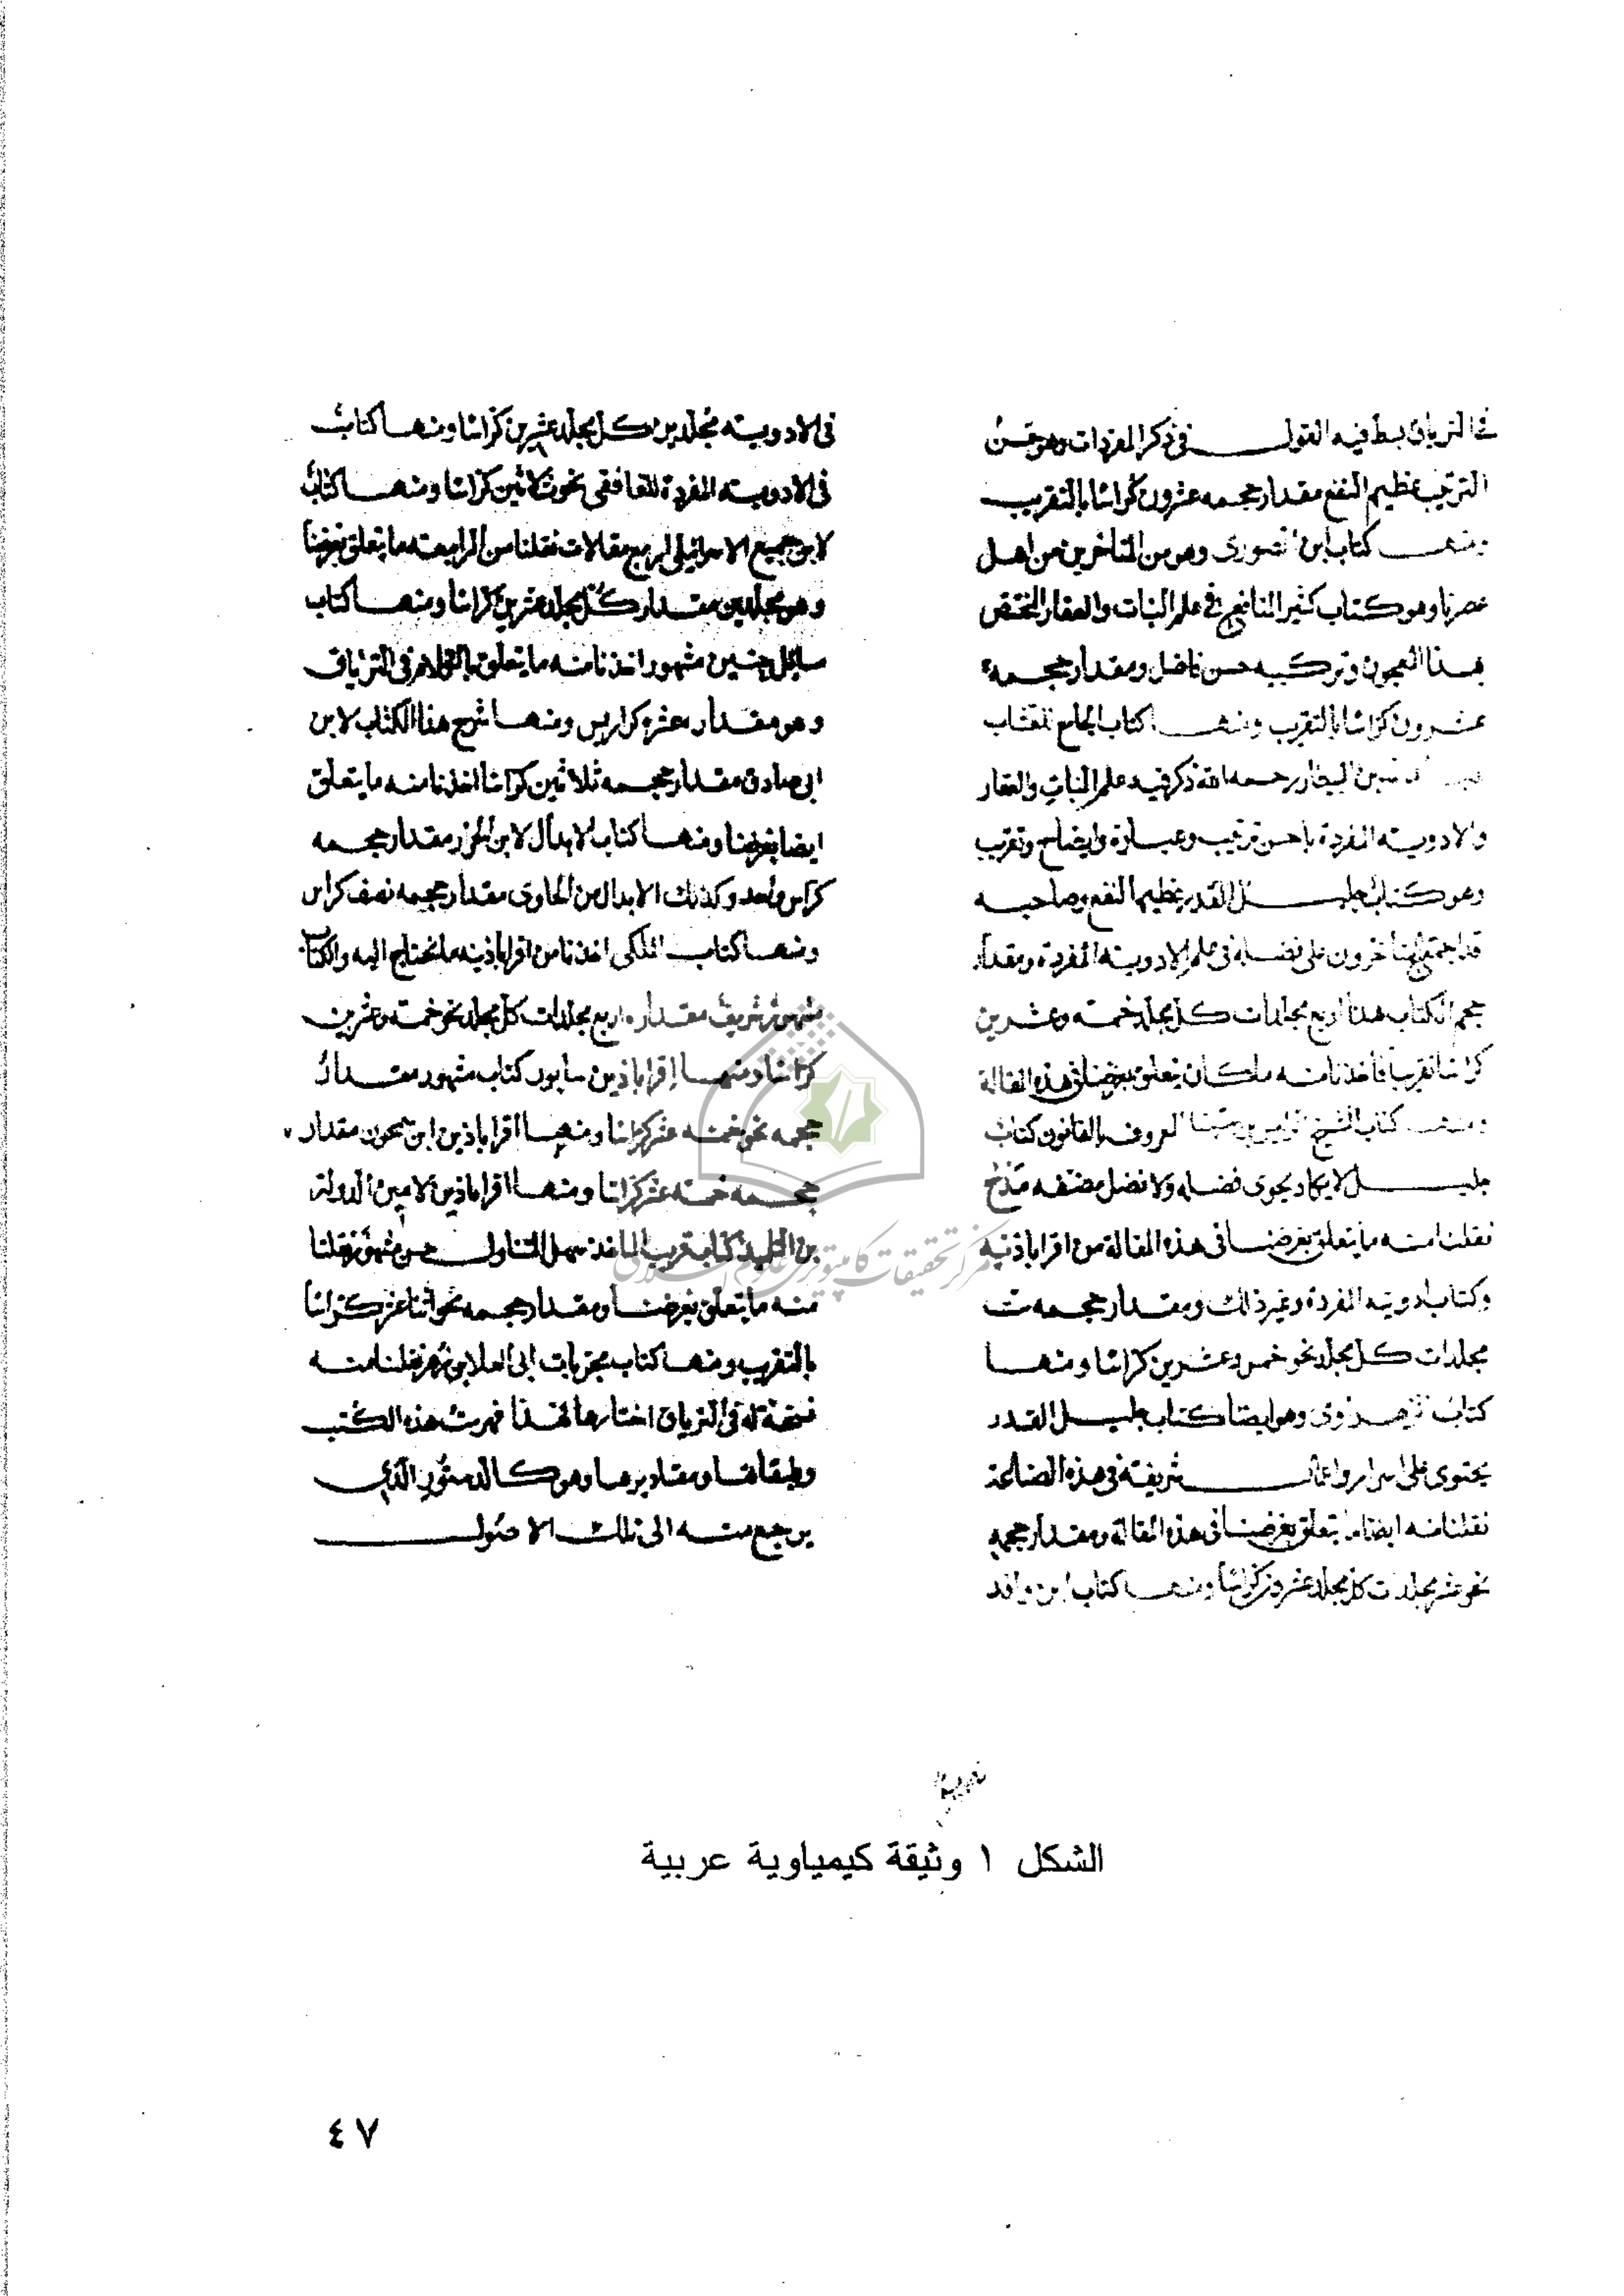 في الترياق بسط فيه القول في ذكر المفردات وهو حسن
الترتيب عظيم النفع مقدار حجمه عشرون كراسا بالتقريب
ومنها كتاب ابن الصورى وهو من المتاخرين من اهل
عصرنا وهو كتاب كثير المنافع في علم النبات والعقار المختص
بهذا المعجون وتركيبه حسن فاضل ومقدار حجمه
عشرون كراسا بالتقريب ومنها كتاب الجامع للعشاب
بن البيطار رحمه الله ذكر فيه علم النبات والعقار
والادويه المفردة باحسن ترتيب وعبارة وايضاح وتقريب
وهو كتاب جليل القدر عظيم النفع وصاحبه
قد اجتمع المتاخرون على فضله في علم الادويه المفردة ومقدار
حجم الكتاب هذا اربع مجلدات كل مجلد خمسه وعشرين
كراسا تقريبا فاخذنا منه ما كان يتعلق بغرضنا في هذه المقالة
ومنها كتاب الشيخ الرئيس بن سينا المعروف بالقانون كتاب
جليل لا يكاد يحوى فضله ولا فضل مصنفه مدح
نقلنا منه ما يتعلق بغرضنا في هذه المقالة من اقراباذنيه
وكتاب ادويته المفردة وغير ذلك ومقدار حجمه ست
مجلدات كل مجلد نحو خمس وعشرين كراسا ومنها
كتاب وهو ايضا كتاب جليل القدر
يحتوى على اسرار واعمال شريفة في هذه الصناعة
نقلنا منه ايضا ما يتعلق بغرضنا في هذه المقالة ومقدار حجمه
نحو عشر مجلدات كل مجلد عشرون كراسا ومنها كتاب ابن وافد
في الادويه مجلدين كل مجلد عشرين كراسا ومنها كتاب
في الادويه المفردة للغافقى نحو ثلاثين كراسا ومنها كتاب
لابن جميع الاسرائيلى اربع مقالات نقلنا من الرابعة ما يتعلق بغرضنا
وهو مجلدين مقدار كل مجلد عشرين كراسا ومنها كتاب
مسايل حنين مشهور اخذنا منه ما يتعلق بالكلام في الترياق
وهو مقدار عشره كراريس ومنها شرح هذا الكتاب لابن
ابى صادق مقدار حجمه ثلاثين كراسا اخذنا منه ما يتعلق
ايضا بغرضنا ومنها كتاب الابدال لابن الجزار مقدار حجمه
كراس واحد وكذلك الابدال من الحاوى مقدار حجمه نصف كراس
ومنها كتاب الملكى اخذنا من اقراباذينه ما نحتاج اليه والكتاب
مشهور شريف مقداره اربع مجلدات كل مجلد نحو خمسة وعشرين
كراسا ومنها اقراباذين سابور كتاب مشهور مقدار
حجمه نحو خمسه عشر كراسا ومنها اقراباذين ابن مقدار
حجمه خمسه عشر كراسا ومنها اقراباذين لامين الدولة
بن التلميذ كتابه قريب الماخذ سهل التناول حسن مشهور نقلنا
منه ما يتعلق بغرضنا ومقدار حجمه نحو اثنا عشر كراسا
بالتقريب ومنها كتاب مجربات ابى العلا بن زهر نقلنا منه
نسخة له في الترياق اختارها فهذا فهرست هذه الكتب
وطبقاتها ومقاديرها وهو كالدستور الذى
يرجع منه الى تلك الاصول
مركز تحقيقات كامپيوترى علوم اسلامى
الشكل ١ وثيقة كيمياوية عربية
٤٧